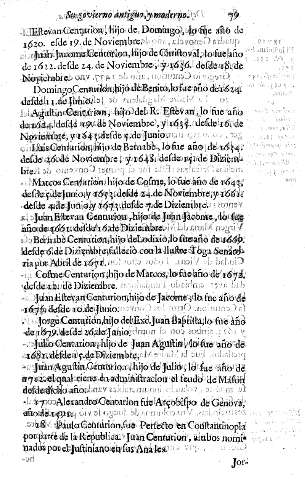 Su govierno antiguo, y moderno. 79
Estevan Centurion, hijo de Domingo, lo fue año de
1620. desde 19. de Noviembre.
Juan Jacome Centurion, hijo de Christoval, lo fue año
de 1622. desde 24. de Noviembre, y 1636. desde 18. de
Noviembre.
Domingo Centurion, hijo de Benito, lo fue año de 1624.
desde 1. de Junio.
Agustin Centurion, hijo del R. Estevan, lo fue año
de Noviembre, y 1635. desde 16. de
Noviembre, y desde 5. de Junio.
Luis Centurion, hijo de Bernabè, lo fue año de
desde 26. de Noviembre, y 1648. desde 15. de Diziem-
bre.
Marcos Centurion, hijo de Cosme, lo fue año de 1642.
desde de Junio, y desde 24. de Noviembre, y
desde 4. de Junio, y desde 7. de Diziembre.
Juan Estevan Centurion, hijo de Juan Jacome, lo fue
año de 1661. desde 16. de Diziembre.
Bernabè Centurion, hijo de Lodisio, lo fue año de
desde 6. de Diziembre, falleciò con la Ilustre Toga Senato-
ria por Abril de
Cosme Centurion, hijo de Marcos, lo fue año de 1673.
desde de Diziembre.
Juan Estevan Centurion, hijo de Jacome, lo fue año de
1675. desde 10. de Junio.
Jorge Centurion, hijo del Exc. Juan Baptista, lo fue año
de 1679. desde 26. de Junio.
Julio Centurion, hijo de Juan Agustin, lo fue año de
1681. desde 15. de Diziembre.
Juan Agustin Centurion, hijo de Julio, lo fue año de
el qual tiene en administracion el feudo de Masin
desde dicho año.
17 Alexandro Centurion fue Arçobispo de Genova,
año de
18 Paulo Centurion fue Perfecto en Constantinopla
por parte de la Republica. Juan Centurion, ambos nomi-
nados por el Justiniano en sus Anales.
Jor-